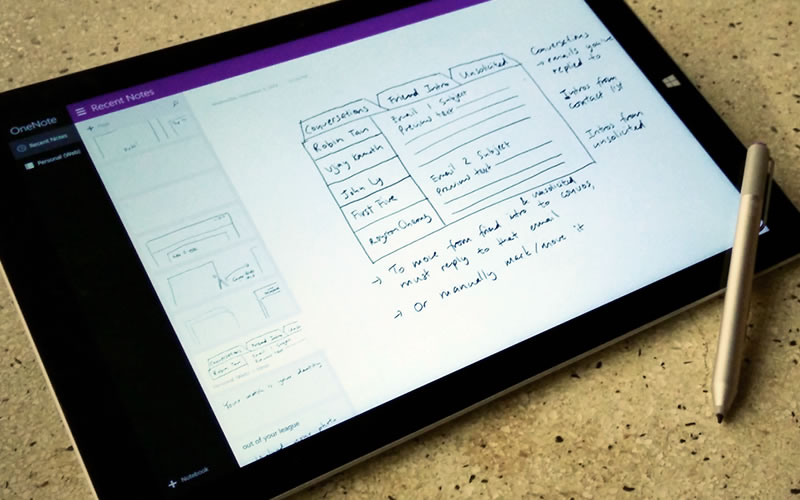 OneNote
Recent Notes
Personal (Web)
Notebook
Recent Notes
Page
out of your league
Conversations
Friend Intro
Unsolicited
Robin Tan
Vijay Kamath
John Ly
First Five
Email 1 Subject
Preview text
Email 2 Subject
Preview text
Conversations
→ emails you've
replied to
Intros from
contact list
Intros from
unsolicited
& unsolicited
→ To move from friend intro to convos,
must reply to that email
→ Or manually mark/move it